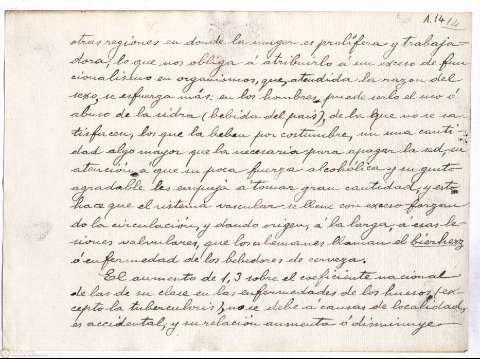 A.14 14
otras regiones en donde la muger es prolífera y trabaja-
dora, lo que nos obliga á atribuirlo á un exceso de fun-
cionalismo en organismos, que, atendida la razon del
sexo, se esfuerza más: en los hombres puede serlo el uso ó
abuso de la sidra (bebida del pais), de la que no se sa-
tisfacen, los que la beben por costumbre, sin una canti-
dad algo mayor que la necesaria para apagar la sed, en
atención á que su poca fuerza alcohólica y su gusto
agradable les empuja á tomar gran cantidad, y esto
hace que el sistema vascular se llene con exceso forzan-
do la circulación, y dando origen, á la larga, á esas le-
siones valvulares, que los alemanes llaman el bierherz
ó enfermedad de los bebedores de cerveza.
El aumento de 1,3 sobre el coeficiente nacional
de las de su clase en las enfermedades de los huesos (ex-
cepto la tuberculosis), no se debe á causas de localidad,
es accidental, y su relación aumenta ó disminuye